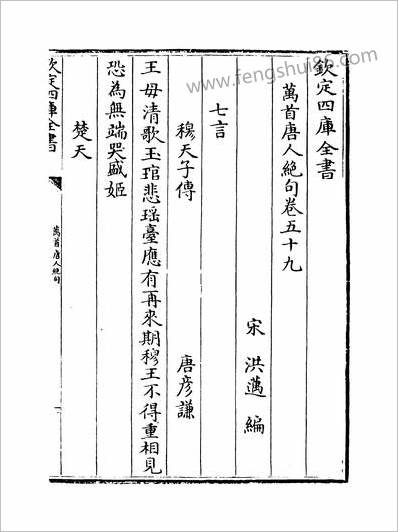 欽定四庫全書
萬首唐人絶句卷五十九
宋 洪邁 編
七言
穆天子傳 唐彦謙
王母清歌玉琯悲瑶臺應有再來期穆王不得重相見
恐為無端哭盛姬
楚天
欽定四庫全書
萬首唐人絶句
www.fengshui86.com